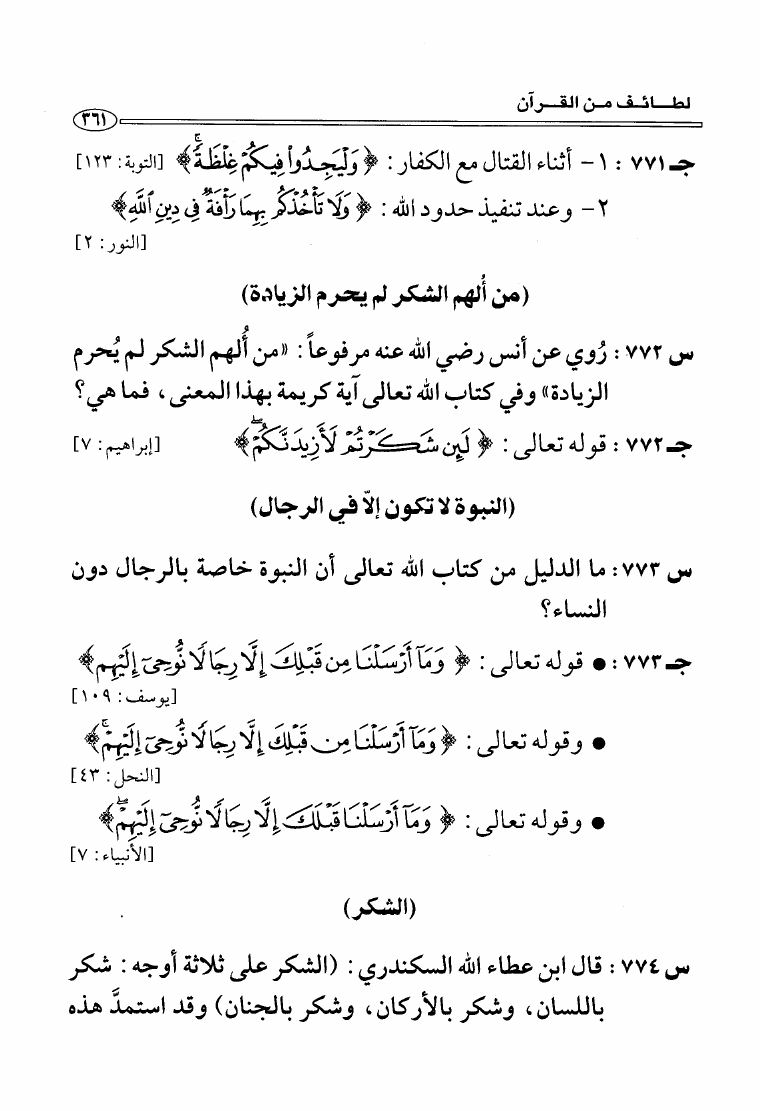 لطائف من القرآن
٣٦١
جـ ٧٧١ : ١ - أثناء القتال مع الكفار : ﴿ وَلْيَجِدُوا۟ فِيكُمْ غِلْظَةً ۚ ﴾ [التوبة: ١٢٣]
٢ - وعند تنفيذ حدود الله : ﴿ وَلَا تَأْخُذْكُم بِهِمَا رَأْفَةٌ فِى دِينِ ٱللَّهِ ﴾
[النور: ٢]
(من أُلهم الشكر لم يحرم الزيادة)
س ٧٧٢ : رُوي عن أنس رضي الله عنه مرفوعاً : «من أُلهم الشكر لم يُحرم
الزيادة» وفي كتاب الله تعالى آية كريمة بهذا المعنى، فما هي؟
جـ ٧٧٢ : قوله تعالى : ﴿ لَئِن شَكَرْتُمْ لَأَزِيدَنَّكُمْ ۖ ﴾ [إبراهيم: ٧]
(النبوة لا تكون إلاّ في الرجال)
س ٧٧٣ : ما الدليل من كتاب الله تعالى أن النبوة خاصة بالرجال دون
النساء؟
جـ ٧٧٣ : ● قوله تعالى : ﴿ وَمَآ أَرْسَلْنَا مِن قَبْلِكَ إِلَّا رِجَالًا نُّوحِىٓ إِلَيْهِم ﴾
[يوسف: ١٠٩]
● وقوله تعالى : ﴿ وَمَآ أَرْسَلْنَا مِن قَبْلِكَ إِلَّا رِجَالًا نُّوحِىٓ إِلَيْهِمْ ۚ ﴾
[النحل: ٤٣]
● وقوله تعالى : ﴿ وَمَآ أَرْسَلْنَا قَبْلَكَ إِلَّا رِجَالًا نُّوحِىٓ إِلَيْهِمْ ۖ ﴾
[الأنبياء: ٧]
(الشكر)
س ٧٧٤ : قال ابن عطاء الله السكندري : (الشكر على ثلاثة أوجه : شكر
باللسان، وشكر بالأركان، وشكر بالجنان) وقد استمدَّ هذه